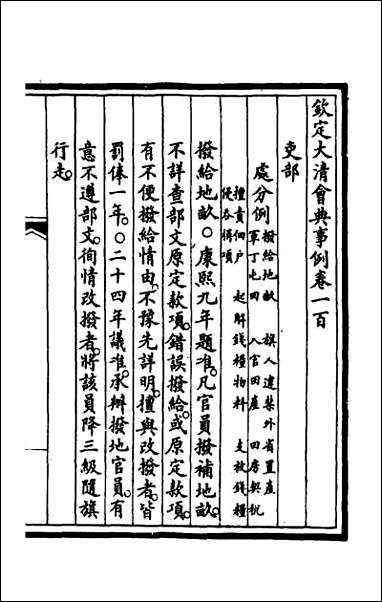 欽定大清會典事例卷一百
吏部
處分例 撥給地畝 旗人違禁外省置產
軍丁屯田 入官田產 田房契稅
擅責佃戶 起解錢糧物料 支放錢糧
侵吞得項
撥給地畝○康熙九年題准凡官員撥補地畝
不詳查部文原定款項錯誤撥給或原定款項
有不便撥給情由不豫先詳明擅與改撥者皆
罰俸一年○二十四年議准承辦撥地官員有
意不遵部文徇情改撥者將該員降三級隨旗
行走